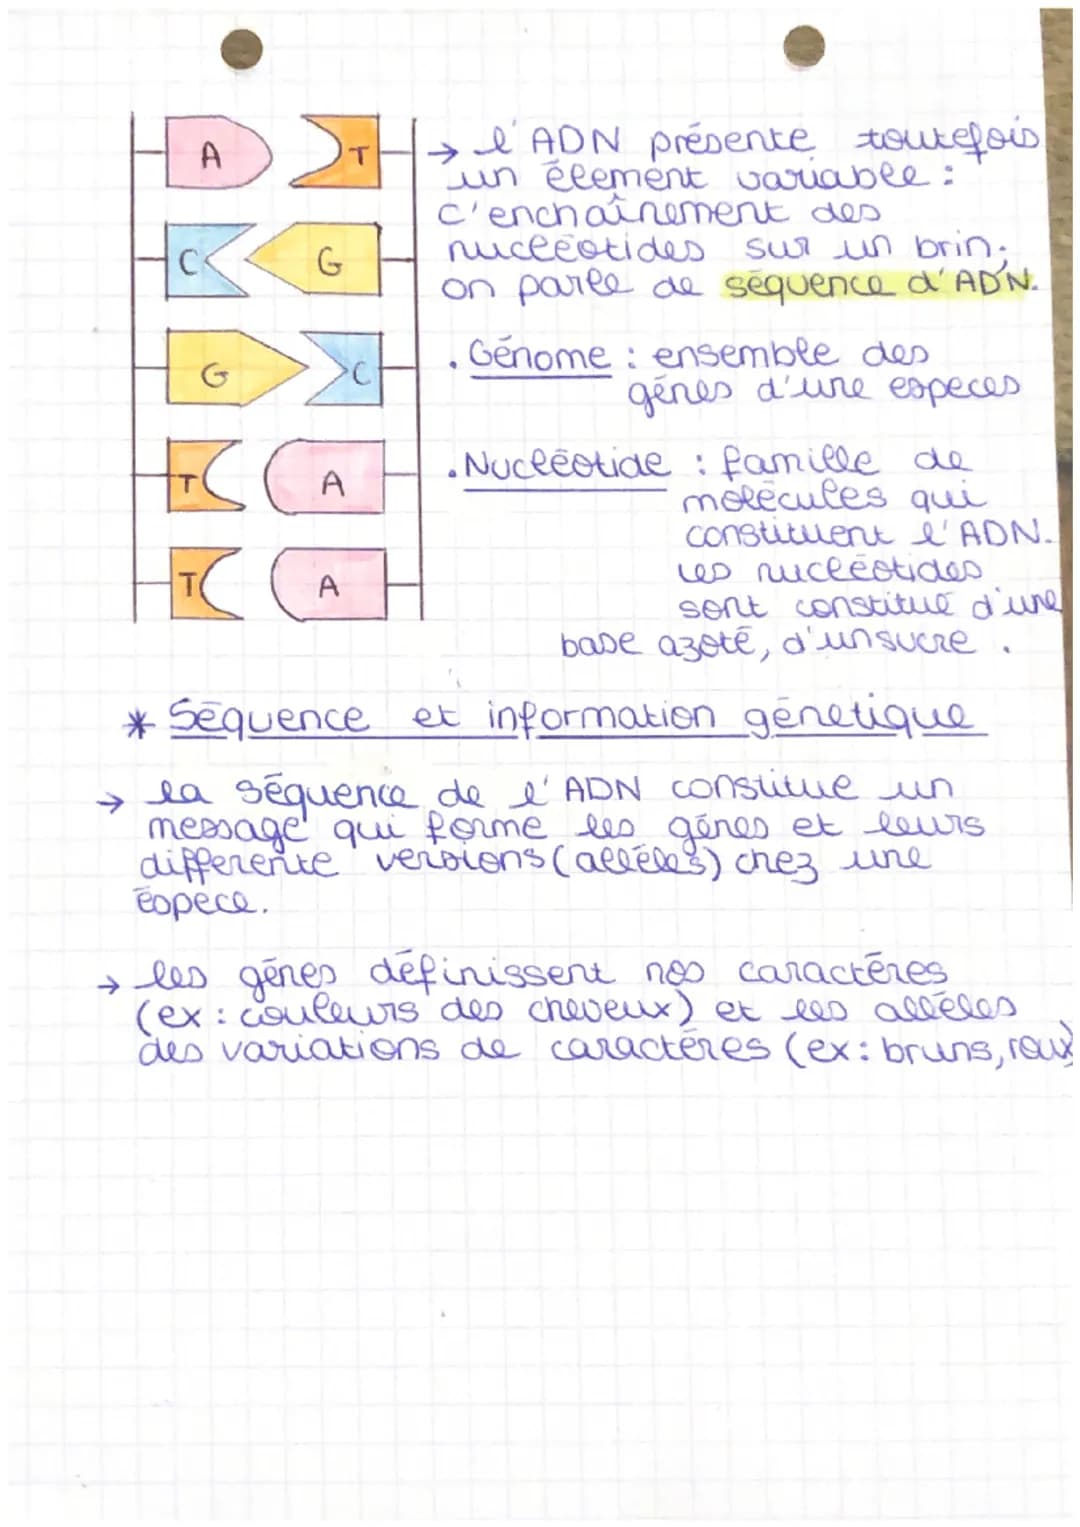 A T
C G
G C
T A
T A
→ l'ADN présente toutefois
un élement variable :
c'enchaînement des
nucléotides sur un brin;
on parle de séquence d'ADN.
. Génome : ensemble des
gènes d'une especes
. Nucléotide : famille de
molécules qui
constituent l'ADN.
les nucléotides
sont constitué d'une
base azoté, d'un sucre .
* Séquence et information génétique
→ la séquence de l'ADN constitue un
message qui forme les gènes et leurs
differente versions (allèles) chez une
éspece.
→ les gènes définissent nos caractères
(ex : couleurs des cheveux) et les allèles
des variations de caractères (ex : bruns, roux)